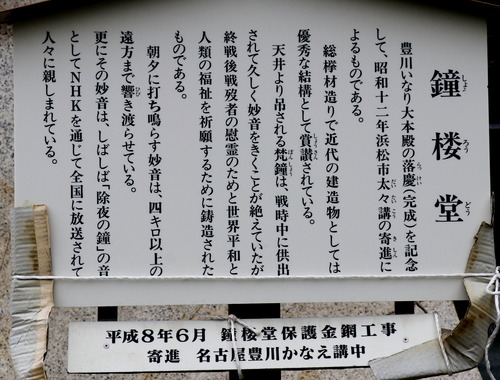 鐘楼堂
しょ ろう どう
豊川いなり大本殿の落慶(完成)を記念
らっけい
して、昭和十二年浜松市太々講の寄進に
だいだいこう きしん
よるものである。
総欅材造りで近代の建造物としては
優秀な結構として賞讃されている。
しょうさん
天井より吊される梵鐘は、戦時中に供出
ぼんしょう
されて久しく妙音をきくことが絶えていたが
終戦後戦歿者の慰霊のためと世界平和と
人類の福祉を祈願するために鋳造された
ものである。
朝夕に打ち鳴らす妙音は、四キロ以上の
遠方まで響き渡らせている。
ひび
更にその妙音は、しばしば「除夜の鐘」の音
としてNHKを通じて全国に放送されて
人々に親しまれている。
平成8年6月 鐘桜堂保護金網工事
寄進 名古屋豊川かなえ講中